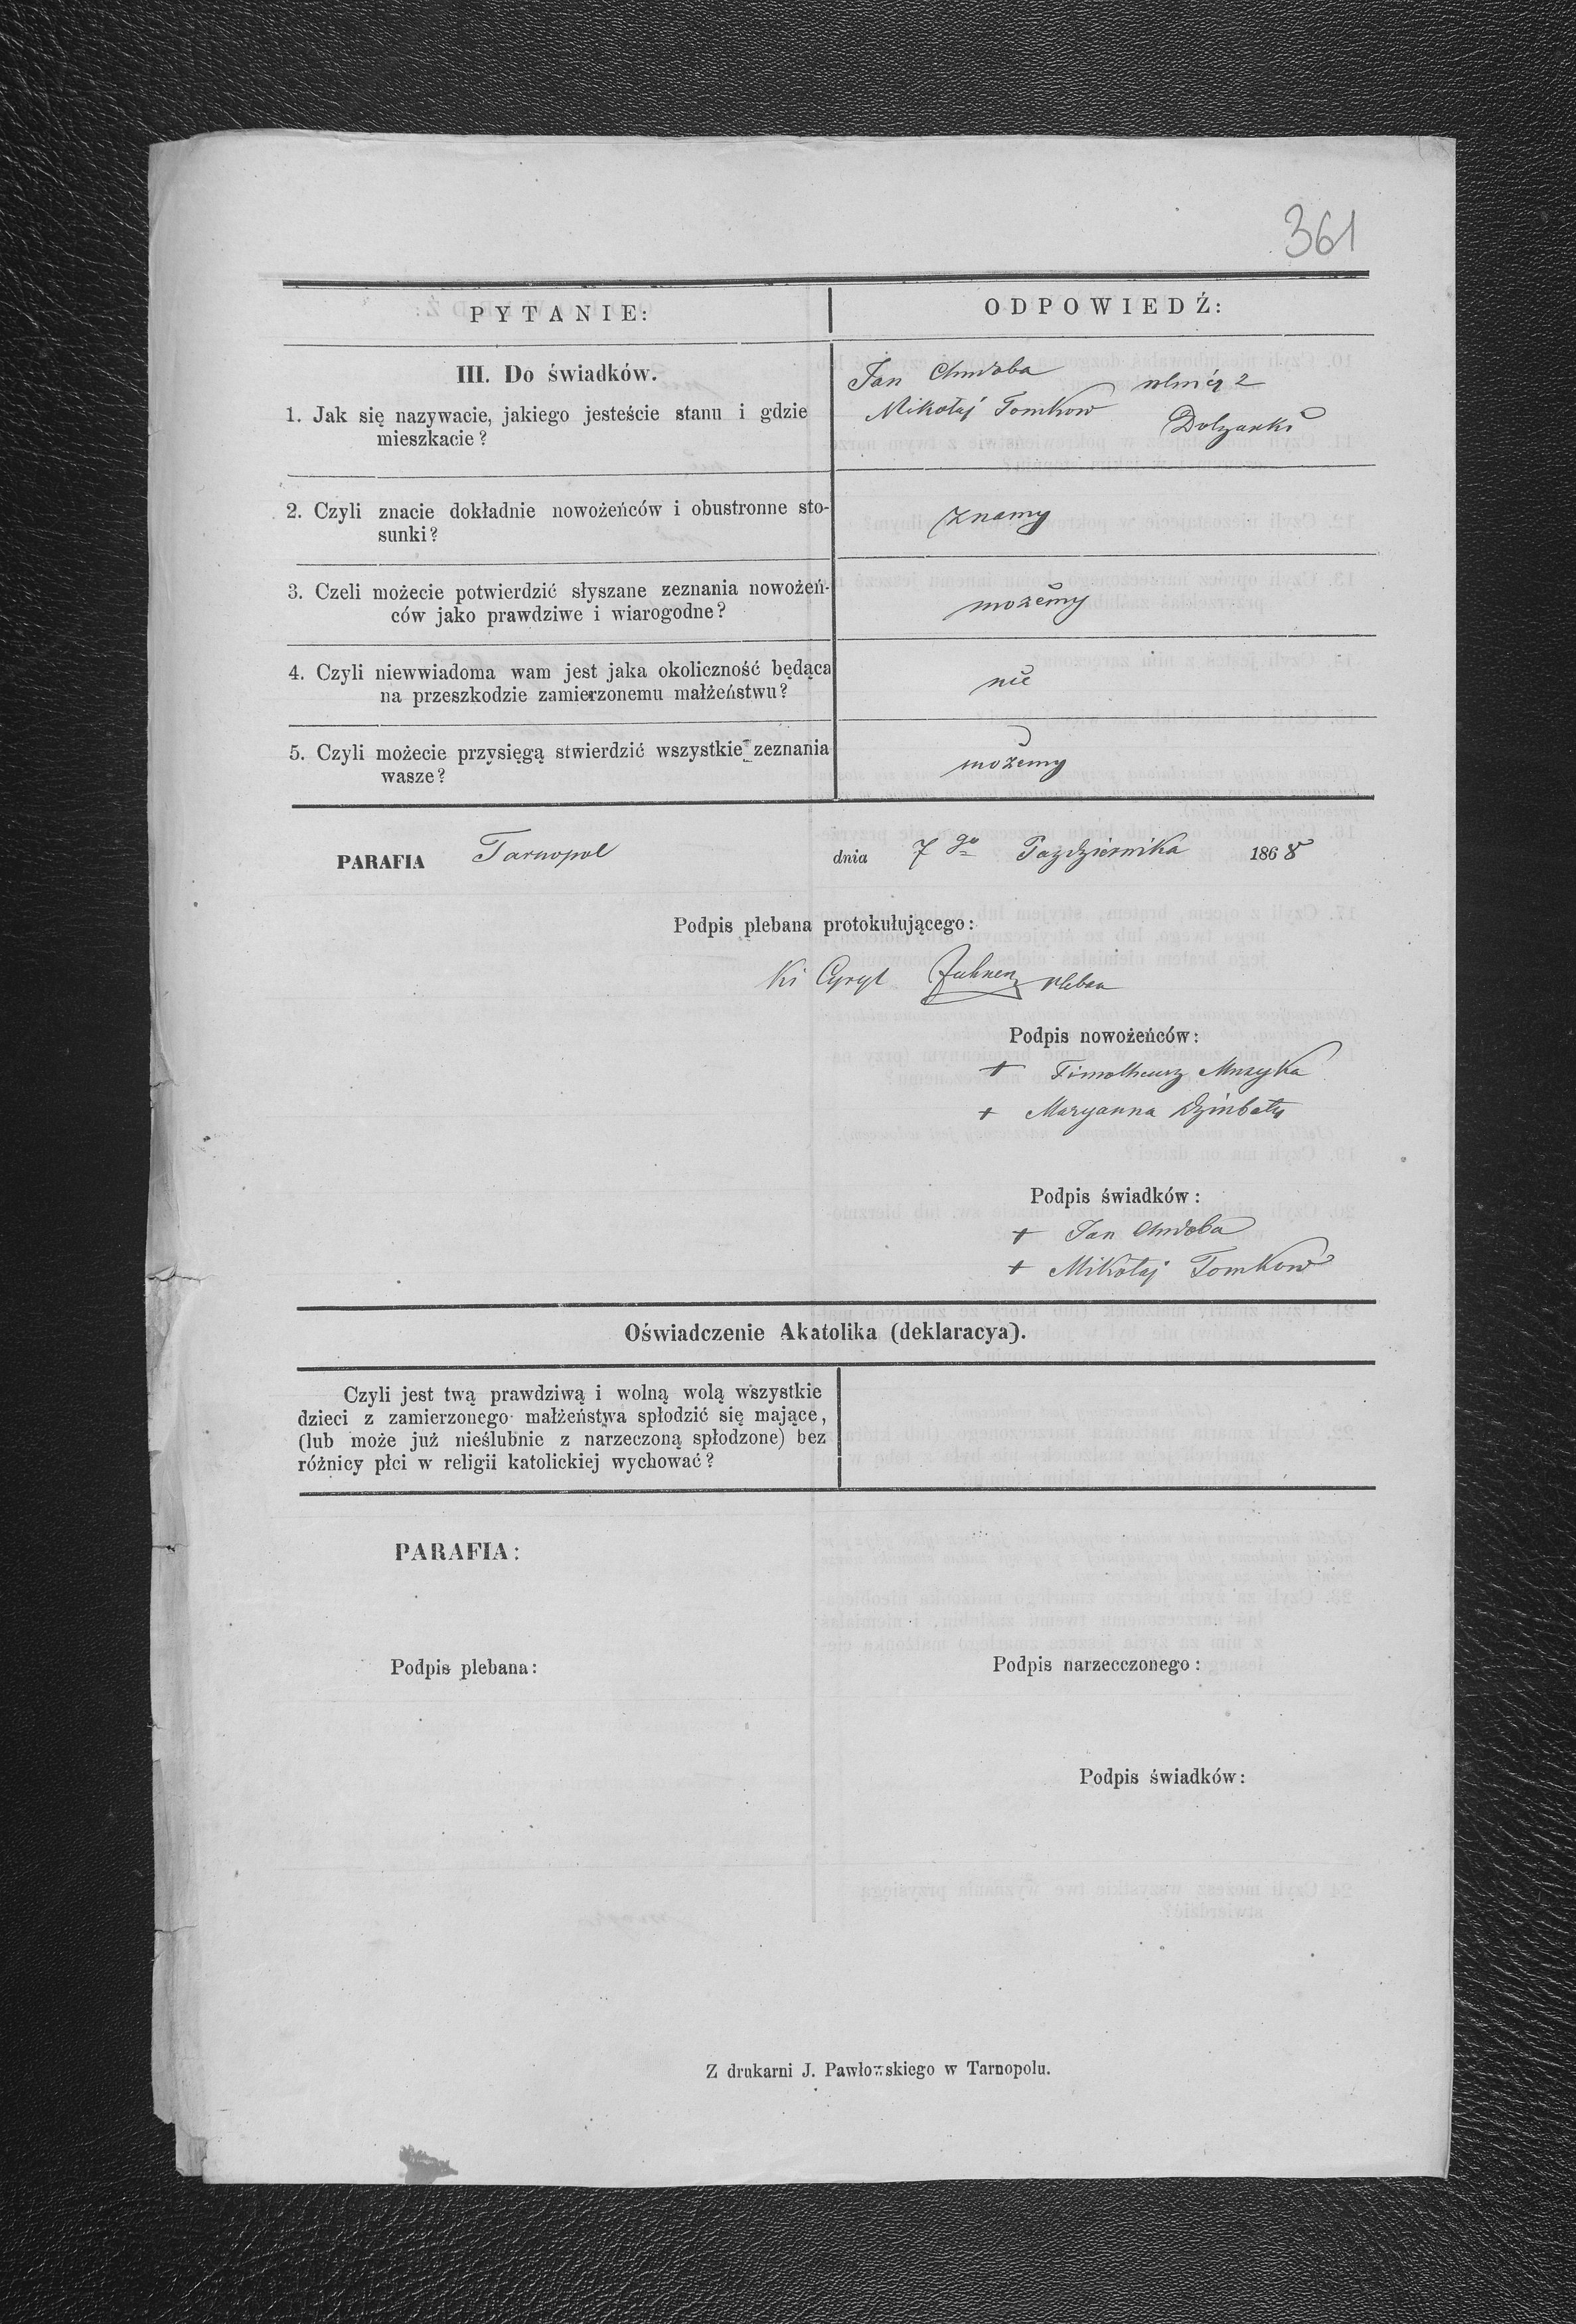 361
PYTANIE:
ODPOWIEDŹ:
III. Do świadków.
1. Jak się nazywacie, jakiego jesteście stanu i gdzie
mieszkacie?
Jan Chudoba
Mikołaj Tomkow
2. Czyli znacie dokładnie nowożeńców i obustronne sto-
sunki?
znamy
3. Czeli możecie potwierdzić słyszane zeznania nowożeń-
ców jako prawdziwe i wiarogodne?
możemy
4. Czyli niewwiadoma wam jest jaka okoliczność będąca
na przeszkodzie zamierzonemu małżeństwu?
nie
5. Czyli możecie przysięgą stwierdzić wszystkie zeznania
wasze?
możemy
PARAFIA Tarnopol dnia 7 go Października 1868
Podpis plebana protokułującego:
Cyryl pleban
Podpis nowożeńców:
+ Timotheusz Muzyka
+ Maryanna
Podpis świadków:
+ Jan Chudoba
+ Mikołaj Tomkow
Oświadczenie Akatolika (deklaracya).
Czyli jest twą prawdziwą i wolną wolą wszystkie
dzieci z zamierzonego małżeństwa spłodzić się mające,
(lub może już nieślubnie z narzeczoną spłodzone) bez
różnicy płci w religii katolickiej wychować?
PARAFIA:
Podpis plebana:
Podpis narzecczonego:
Podpis świadków:
Z drukarni J. Pawłowskiego w Tarnopolu.